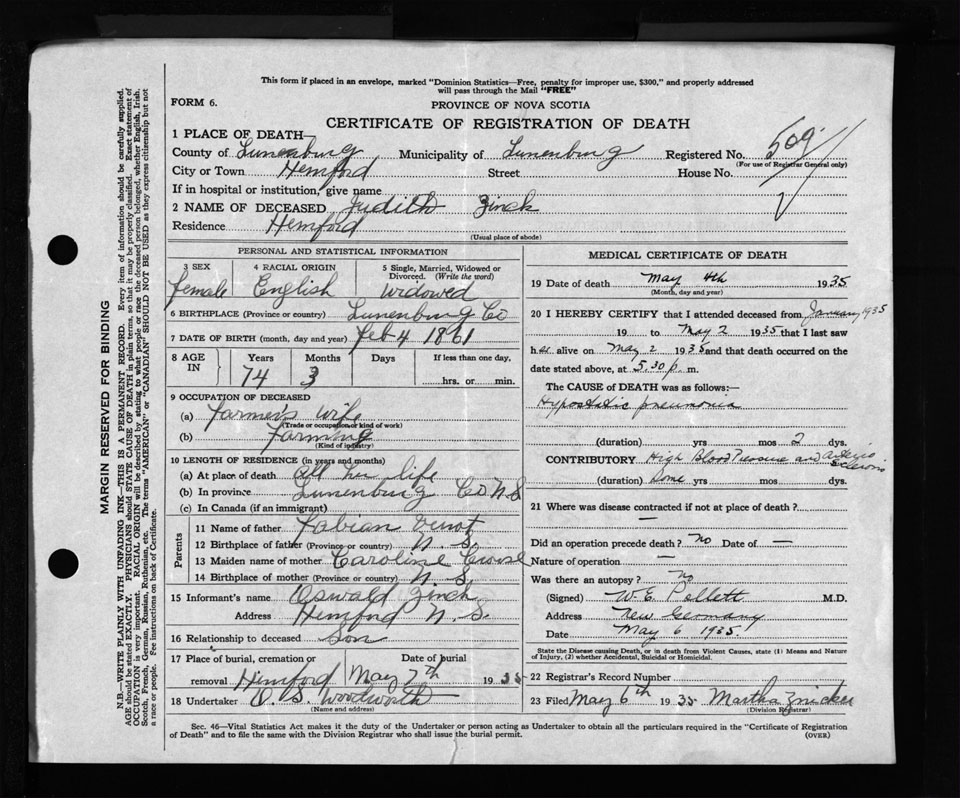 This form if placed in an envelope, marked "Dominion Statistics—Free, penalty for improper use, $300," and properly addressed
will pass through the Mail "FREE"
FORM 6.
PROVINCE OF NOVA SCOTIA
CERTIFICATE OF REGISTRATION OF DEATH
1 PLACE OF DEATH—
County of Lunenburg Municipality of Lunenburg Registered No. 509
(For use of Registrar General only)
City or Town Hemford Street House No.
If in hospital or institution, give name
2 NAME OF DECEASED Judith Zinck
Residence Hemford
(Usual place of abode)
PERSONAL AND STATISTICAL INFORMATION
3 SEX 4 RACIAL ORIGIN 5 Single, Married, Widowed or
Divorced. (Write the word)
female English Widowed
6 BIRTHPLACE (Province or country) Lunenburg Co
7 DATE OF BIRTH (month, day and year) Feb 4 1861
8 AGE IN Years Months Days If less than one day,
74 3 hrs. or min.
9 OCCUPATION OF DECEASED
(a) Farmers wife
(Trade or occupation or kind of work)
(b) Farming
(Kind of industry)
10 LENGTH OF RESIDENCE (in years and months)
(a) At place of death All her life
(b) In province Lunenburg Co N S
(c) In Canada (if an immigrant)
Parents
11 Name of father Fabian Veinot
12 Birthplace of father (Province or country) N S.
13 Maiden name of mother Caroline
14 Birthplace of mother (Province or country) N S.
15 Informant's name Oswald Zinck
Address Hemford N. S.
16 Relationship to deceased Son
17 Place of burial, cremation or Date of burial
removal Hemford May 7th 1935
18 Undertaker O. S. Woodworth
(Name and address)
MEDICAL CERTIFICATE OF DEATH
19 Date of death May 4th 1935
(Month, day and year)
20 I HEREBY CERTIFY that I attended deceased from January 1935
19 to May 2 1935 that I last saw
her alive on May 2 1935 and that death occurred on the
date stated above, at 5.30 p. m.
The CAUSE of DEATH was as follows:—
Hypostatic pneumonia
(duration) yrs mos 2 dys.
CONTRIBUTORY High Blood Pressure and arterio sclerosis
(duration) Some yrs mos dys.
21 Where was disease contracted if not at place of death?
—
Did an operation precede death? no Date of —
Nature of operation —
Was there an autopsy? no
(Signed) W. E. Pollett M.D.
Address New Germany
Date May 6 1935
State the Disease causing Death, or in death from Violent Causes, state (1) Means and Nature
of Injury, (2) whether Accidental, Suicidal or Homicidal.
22 Registrar's Record Number
23 Filed May 6th 1935 Martha Zwicker
(Division Registrar)
Sec. 46—Vital Statistics Act makes it the duty of the Undertaker or person acting as Undertaker to obtain all the particulars required in the "Certificate of Registration
of Death" and to file the same with the Division Registrar who shall issue the burial permit. (OVER)
MARGIN RESERVED FOR BINDING
N.B.—WRITE PLAINLY WITH UNFADING INK—THIS IS A PERMANENT RECORD. Every item of information should be carefully supplied.
AGE should be stated EXACTLY. PHYSICIANS should STATE CAUSE OF DEATH in plain terms, so that it may be properly classified. Exact statement of
OCCUPATION is very important. RACIAL ORIGIN will be described by stating to what people or race the deceased person belonged, whether English, Irish,
Scotch, French, German, Russian, Ruthenian, etc. The terms "AMERICAN" or "CANADIAN" SHOULD NOT BE USED as they express citizenship but not
a race or people. See instructions on back of Certificate.